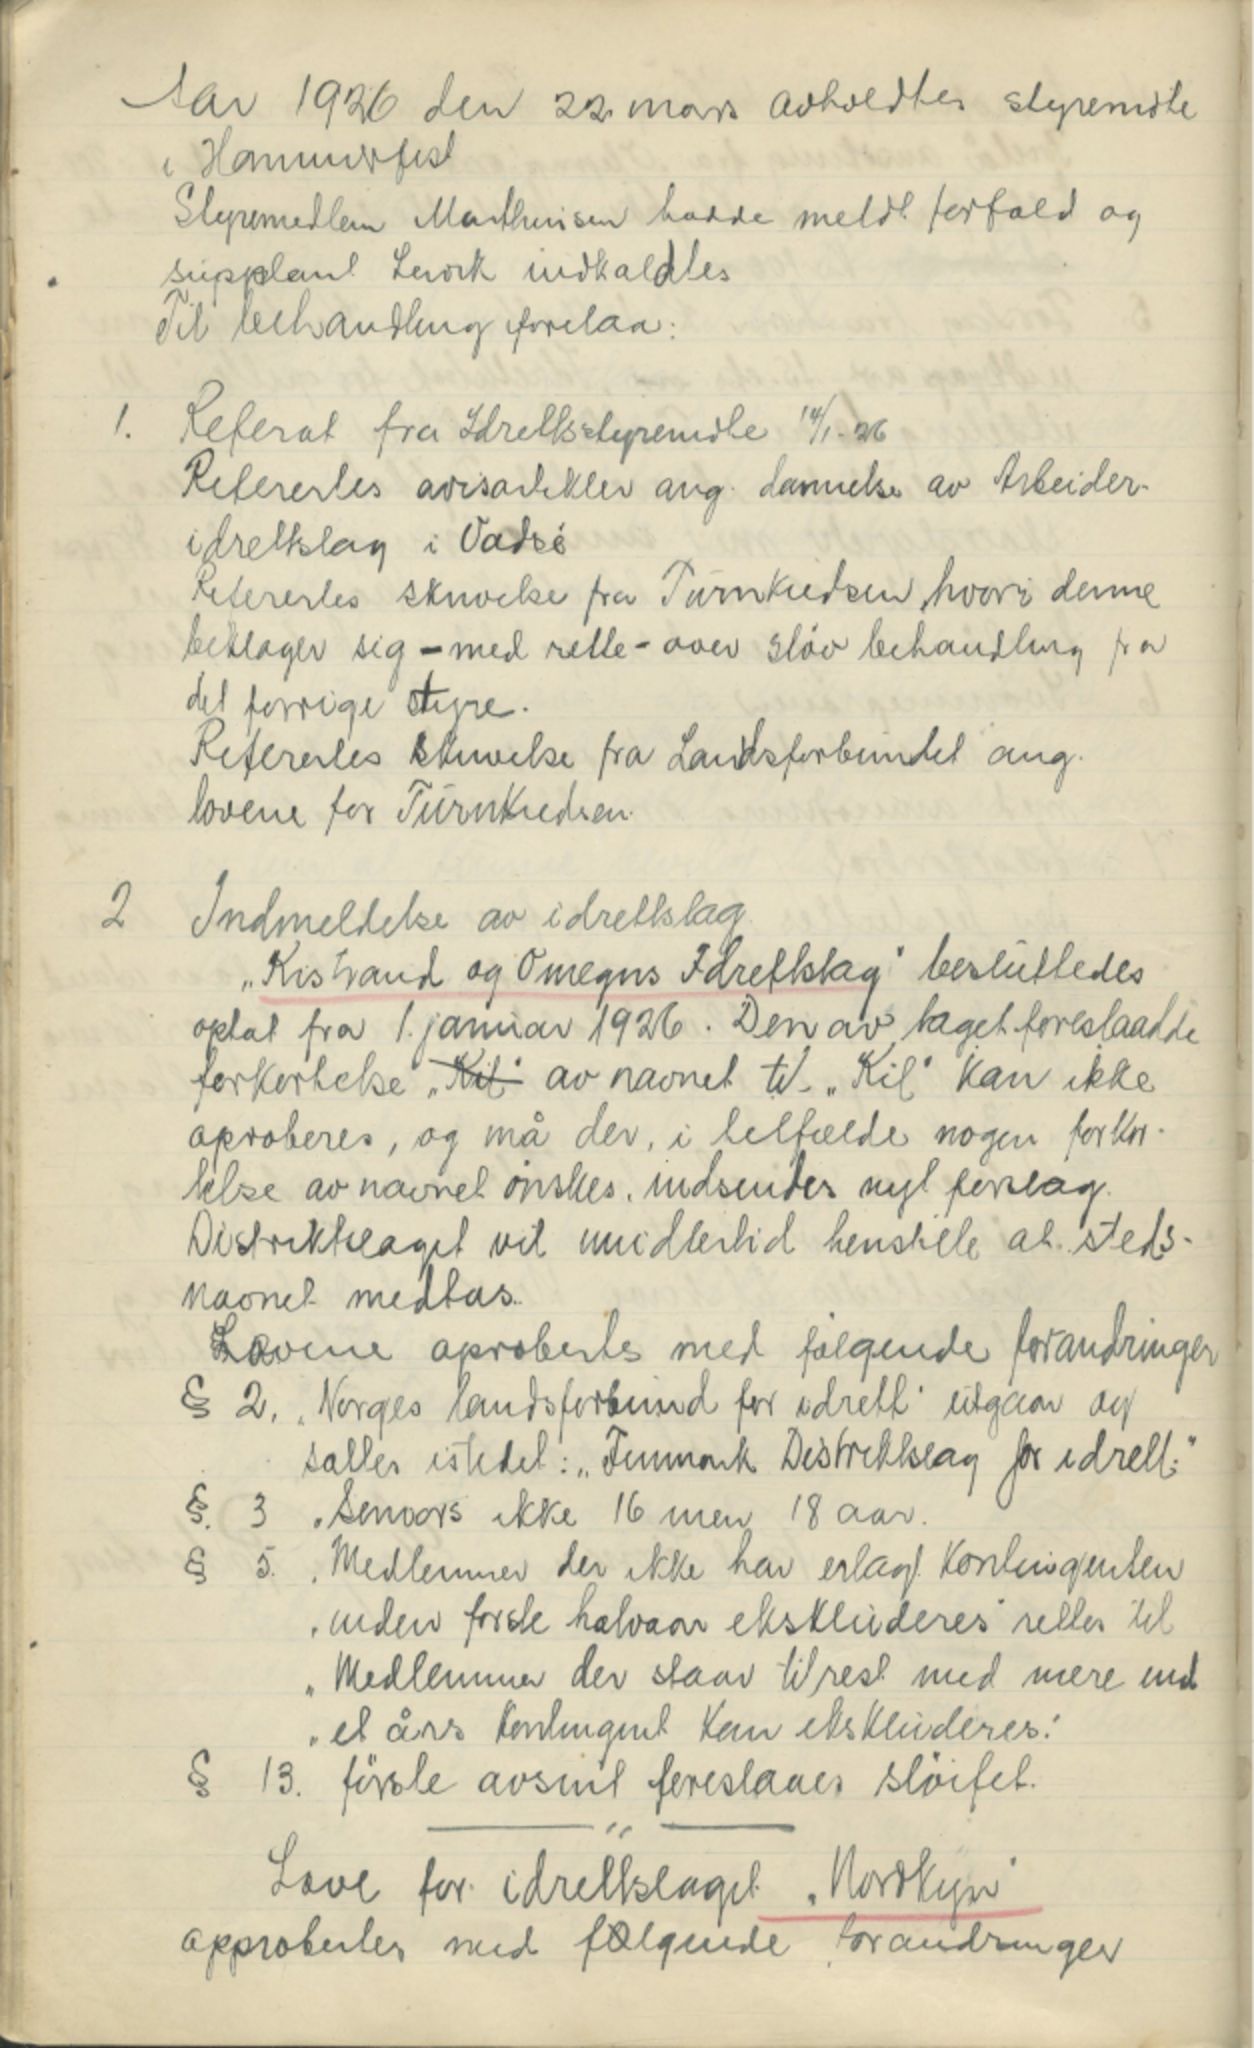 Aar 1926 den 22 mars avholdtes styremöte
i Hammerfest
Styremedlem Mathisen hadde meldt forfald og
supplant indkaldtes
Til behandling forelaa:
1. Referat fra Idrettsstyremöte 14/1-26
Refertes avisartikler ang. dannelse av Arbeider-
idrettslag i Vadsö
Refertes skrivelse fra Turnkredsen, hvori denne
beklager sig - med rette - over slöv behandling fra
det forrige styre.
Refertes skrivelse fra Landsforbundet ang.
lovene for Turnkredsen.
2 Indmeldelse av idrettslag
"Kistrand og Omegns Idrettslag" besluttedes
optat fra 1. januar 1926. Den av laget foreslaadde
forkortelse "Kil" av navnet til "Kil" kan ikke
aproberes, og må der, i tilfælde nogen forkor-
telse av navnet önskes, indsendes nyt forslag.
Distriktslaget vil imidlertid henstille at steds-
navnet medtas.
Lovene aprobertes med følgende forandringer
§ 2. "Norges landsforbund for idrett" utgaar og
sættes istedet: "Finmark Distriktslag for idrett"
§. 3 "Seniors ikke 16 men 18 aar.
§ 5. "Medlemmer der ikke har erlagt kontingenten
"inden forste halvaar ekskluderes" rettes til
"Medlemmer der staar til rest med mere end
"et års kontingent kan ekskluderes."
§ 13. förste avsnit foreslaaes slöifet.
Love for idrettslaget "Nordkyn"
approbertes med følgende forandringer